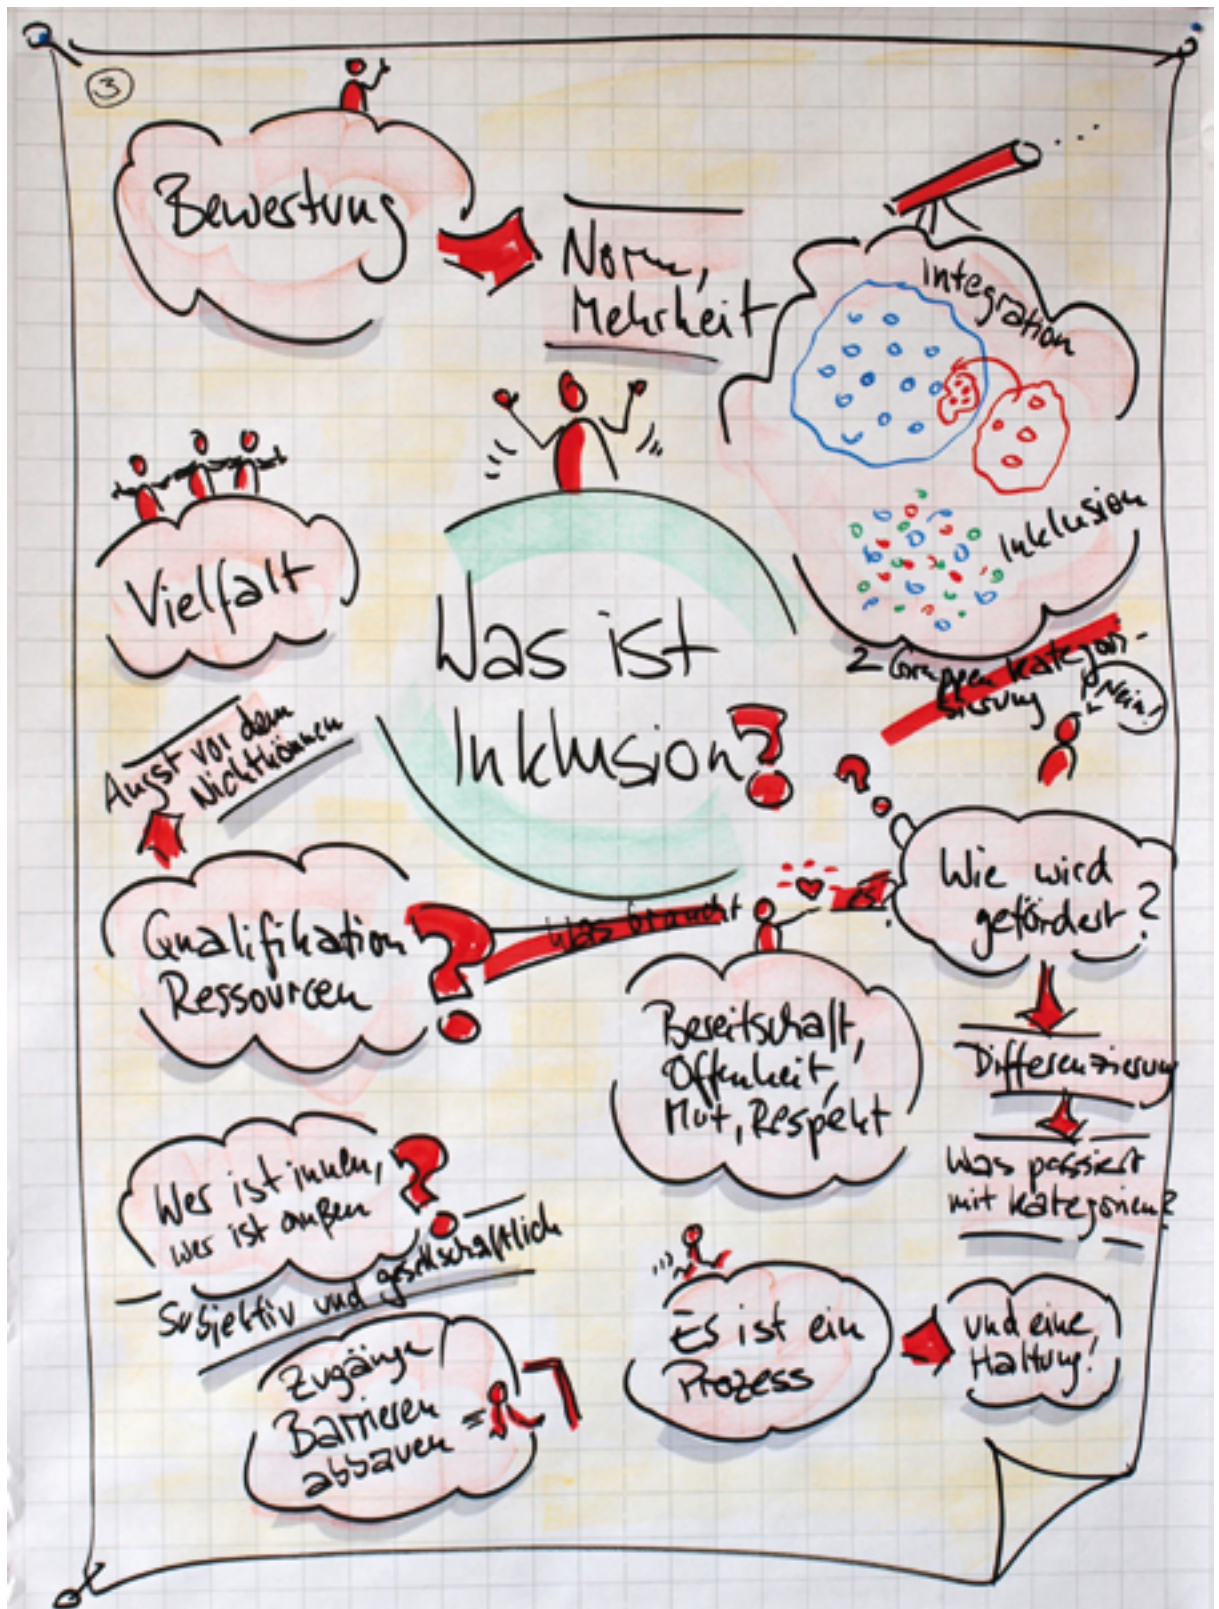 3
Bewertung
Norm,
Mehrheit
Integration
Inklusion
2 Gruppen Kategori-
sierung
Nein!
Vielfalt
Was ist
Inklusion?
Angst vor dem
Nichtkönnen
Qualifikation
Ressourcen
?
Was braucht
es
?
Wie wird
gefördert?
Differenzierung
Was passiert
mit Kategorien?
Bereitschaft,
Offenheit,
Mut, Respekt
Wer ist innen,
wer ist außen
?
Subjektiv und gesellschaftlich
Zugänge
Barrieren
abbauen
Es ist ein
Prozess
und eine
Haltung!